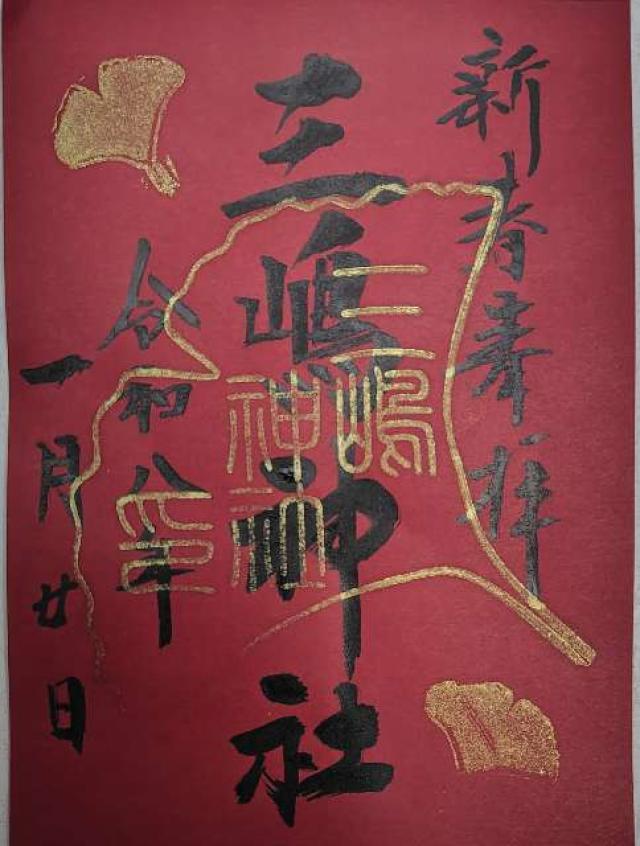 新春奉拝
三嶋神社
三嶋
神社
印
令和八年
一月廿日